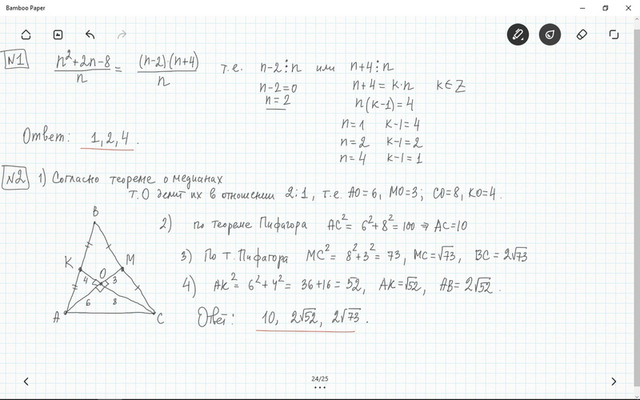 Bamboo Paper
N1 (n²+2n-8)/n = (n-2)·(n+4)/n т.е. n-2⋮n или n+4⋮n
n-2=0 n+4=k·n k∈Z
n=2 n(k-1)=4
n=1 k-1=4
n=2 k-1=2
n=4 k-1=1
Ответ: 1,2,4.
N2 1) Согласно теореме о медианах
т.О делит их в отношении 2:1, т.е. AO=6, MO=3; CO=8, KO=4.
2) по теореме Пифагора AC²=6²+8²=100 ⇒ AC=10
3) По т. Пифагора MC²=8²+3²=73, MC=√73, BC=2√73
4) AK²=6²+4²=36+16=52, AK=√52, AB=2√52.
Ответ: 10, 2√52, 2√73.
B
K O M
4 3
6 8
A C
24/25